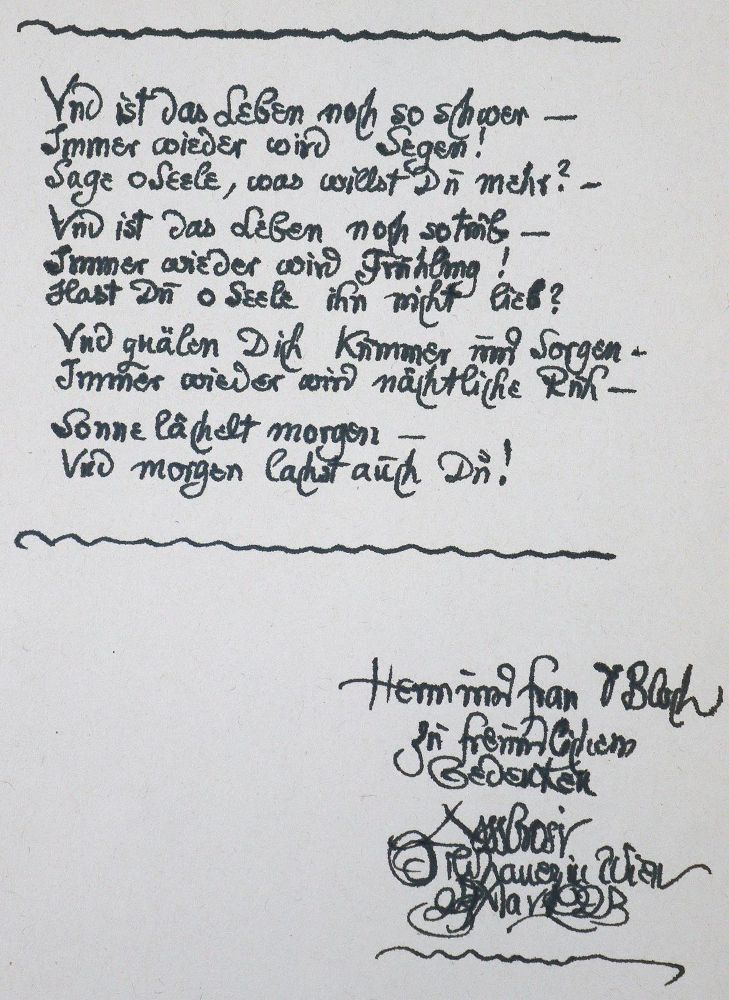 Und ist das Leben noch so schwer —
Immer wieder wird Segen!
Sage o Seele, was willst Du mehr? —
Und ist das Leben noch so trüb —
Immer wieder wird Frühling!
Hast Du o Seele ihn nicht lieb?
Und quälen Dich Kummer und Sorgen -
Immer wieder wird nächtliche Ruh —
Sonne lächelt morgen —
Und morgen lachst auch Du!
Herrn und Frau Bloch
zu freundlichem
Gedenken
Ambrosi
Bildhauer in Wien